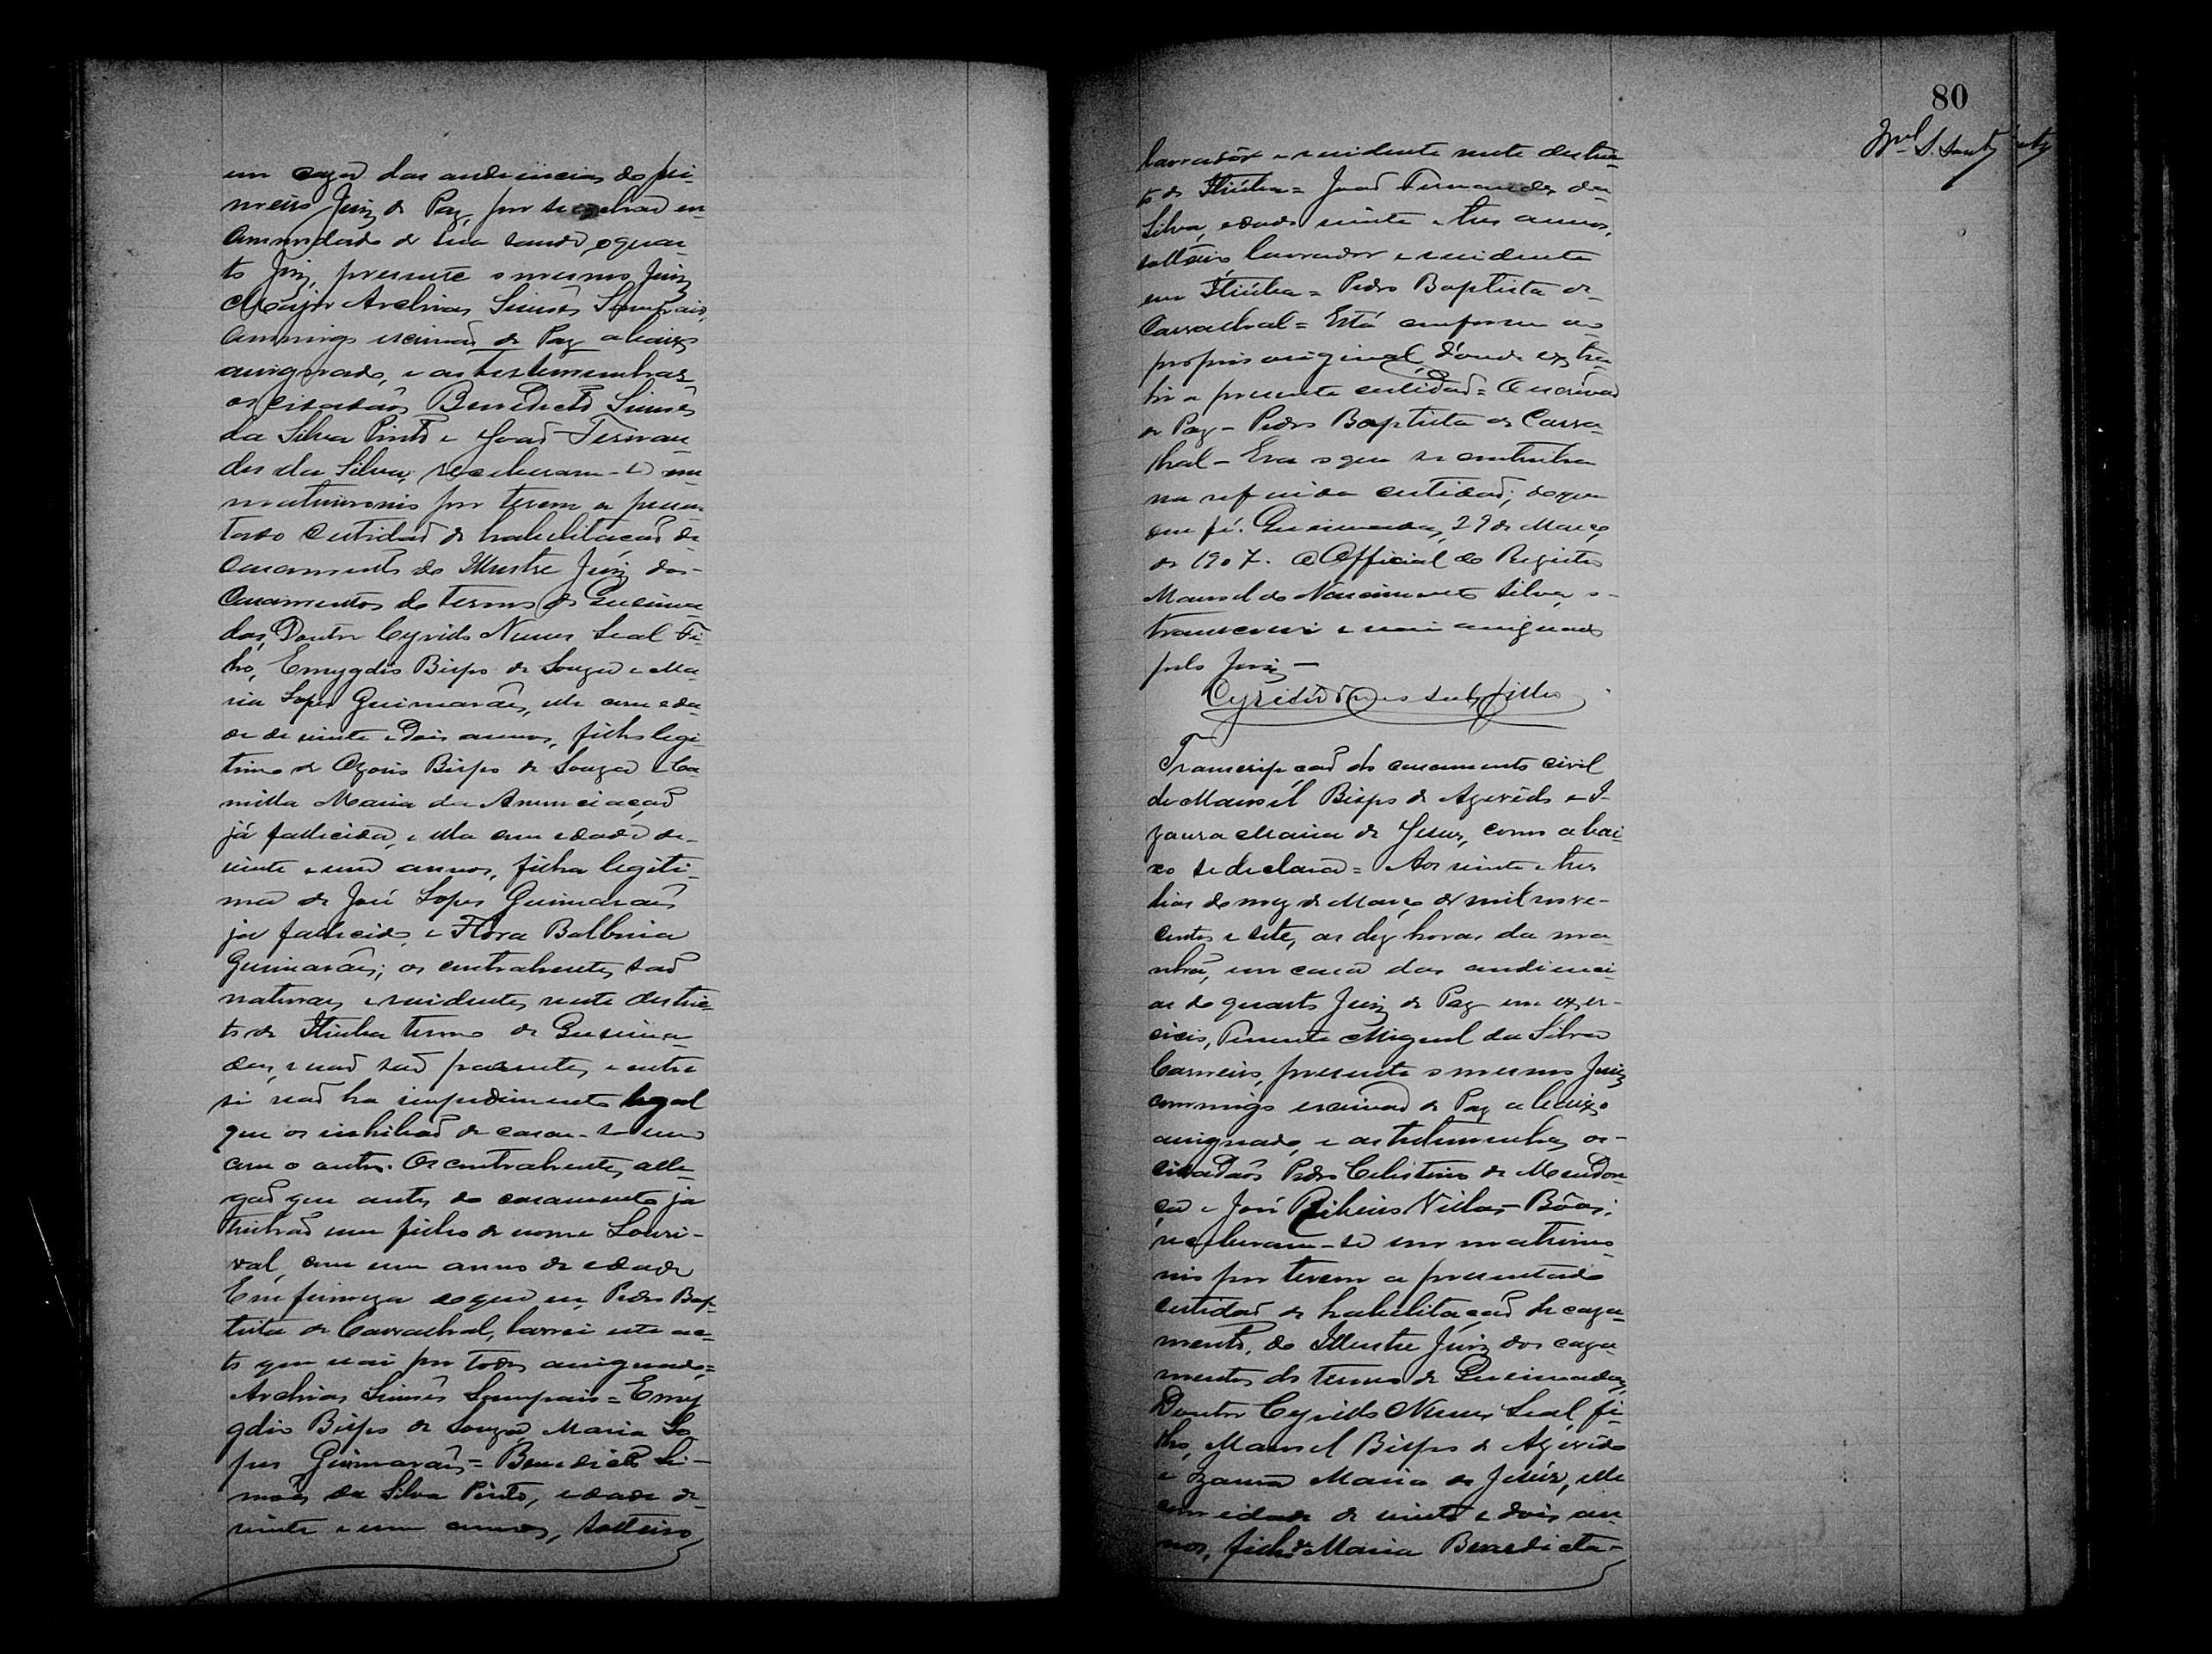 em caza das audiencias do pri-
meiro Juiz de Paz, por se achar en-
commodado de sua saude, o quar-
to Juiz, presente o mesmo Juiz
Major Archias Simões Sampaio,
commigo escrivão de Paz abaixo
assignado, e as testemunhas
os cidadãos Benedicto Simões
da Silva Pinto e João Fernan-
des da Silva, receberam-se em
matrimonio por terem apresen-
tado Certidão de habilitação de
Casamento do Illustre Juiz dos
Casamentos do termo de Queima-
das, Doutor Cyrillo Nunes Leal Fi-
lho, Emygdio Bispo de Souza e Ma-
ria Lopes Guimarães, elle com eda-
de de vinte e Dois annos, filho legi-
timo de Ozorio Bispo de Souza e Ca-
milla Maria da Anunciação
já fallecida, e ella com edade de
vinte e um annos, filha legiti-
ma de José Lopes Guimarães
já fallecido, e Flora Balbina
Guimarães; os contrahentes são
naturaes e residentes neste destric-
to de Itiuba termo de Queima-
das, e não são parentes, e entre
si não ha impedimento legal
que os inhibão de casar-se um
com o outro. Os contrahentes alle-
gão que antes do casamento já
tinhão um filho de nome Louri-
val, com um anno de edade
Em firmeza do que eu, Pedro Bap-
tista de Carvalhal, lavrei este ac-
to que vai por todos assignado =
Archias Simões Sampaio = Emy-
gdio Bispo de Souza, Maria Lo-
pes Guimarães = Benedicto Si-
mões da Silva Pinto, edade de
vinte e um annos, solteiro,
80
lavrador e residente neste destric-
to de Itiúba = João Fernandes da
Silva, edade vinte e tres annos,
solteiro lavrador e residente
em Itiúba = Pedro Baptista de
Carvalhal = Está conforme ao
proprio original, d'onde extra-
hi a presente certidão = O escrivão
de Paz - Pedro Baptista de Carva-
lhal - Era o que se continha
na referida certidão; do que
dou fé. Queimadas, 29 de Março
de 1907. O Official do Registro
Manoel do Nascimento Silva, o
transcrevi e vai assignado
pelo Juiz -
Cyrillo Nunes Leal Filho
Transcripção do casamento civil
de Manoel Bispo de Azevêdo e I-
zaura Maria de Jesus, como abai-
xo se declara = Aos vinte e tres
dias do mez de Março de mil nove-
centos e sete, as dez horas da ma-
nhã, em casa das audienci-
as do quarto Juiz de Paz em exer-
cicio, Tenente Miguel da Silva
Carneiro, presente o mesmo Juiz
commigo escrivão de Paz abaixo
assignado, e as testemunhas os
cidadãos Pedro Celestino de Mendon-
ça e José Ribeiro Villas-Bôas;
receberam-se em matrimo-
nio por terem apresentado
certidão de habilitação de caza-
mento, do Illustre Juiz dos caza-
mentos do termo de Queimadas,
Doutor Cyrillo Nunes Leal fi-
lho, Manoel Bispo de Azevêdo
e Izaura Maria de Jesús, elle
com edade de vinte e dois an-
nos, filho de Maria Benedicta